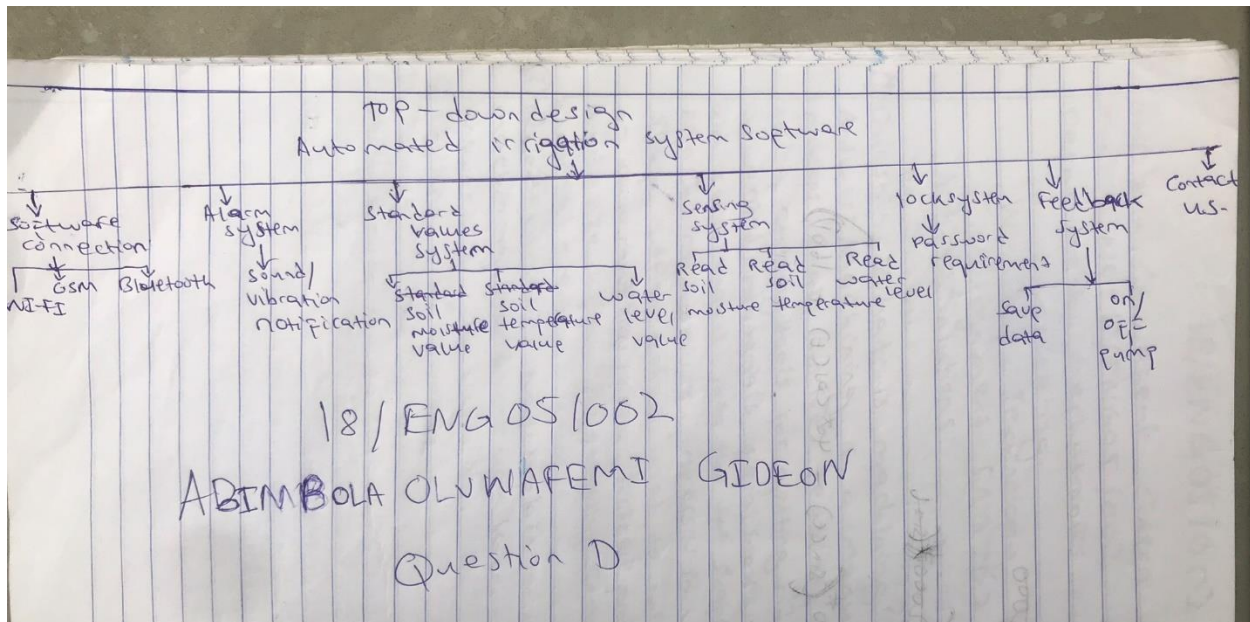 Top-down design
Automated irrigation system software
Software
connection
WI-FI
GSM
Bluetooth
Alarm
system
Sound/
vibration
notification
Standard
values
system
Standard
soil
moisture
value
Standard
soil
temperature
value
water
level
value
Sensing
system
Read
soil
moisture
Read
soil
temperature
Read
water
level
locksystem
password
requirement
Feedback
system
Save
data
on/
off
pump
Contact
us-
18/ENG05/002
ABIMBOLA OLUWAFEMI GIDEON
Question D